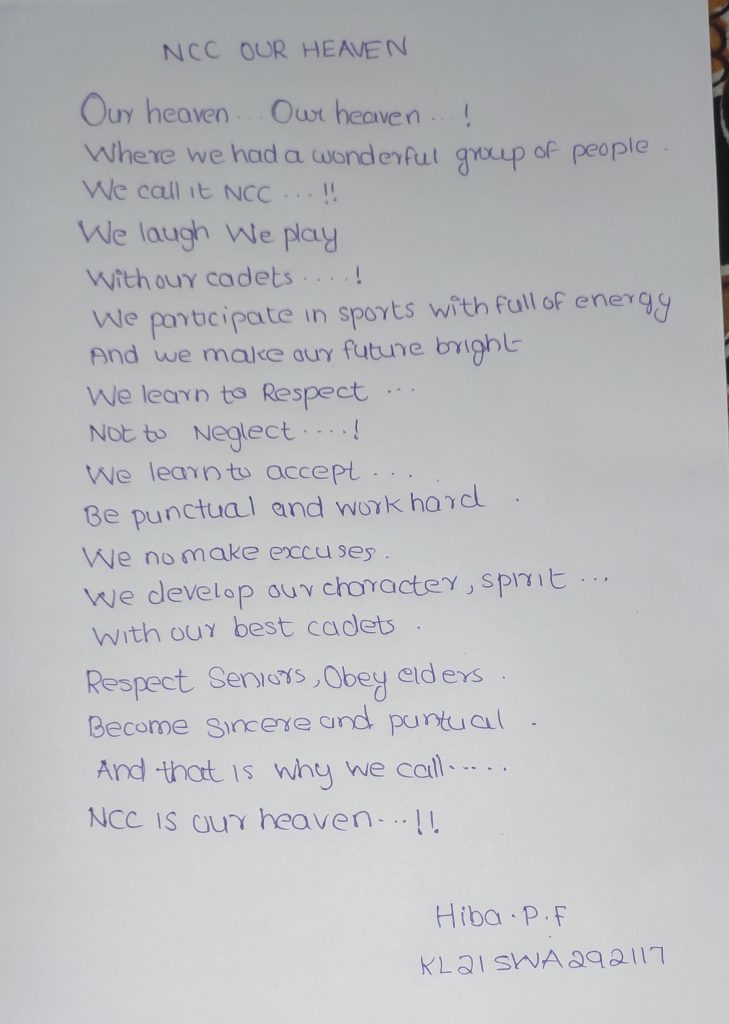 NCC OUR HEAVEN
Our heaven... Our heaven...!
Where we had a wonderful group of people.
We call it NCC...!!
We laugh We play
With our cadets....!
We participate in sports with full of energy
And we make our future bright
We learn to Respect...
Not to Neglect....!
We learn to accept....
Be punctual and work hard.
We no make excuses.
We develop our character, spirit...
With our best cadets.
Respect Seniors, Obey elders.
Become sincere and puntual.
And that is why we call.....
NCC is our heaven...!!
Hiba.P.F
KL21SWA292117